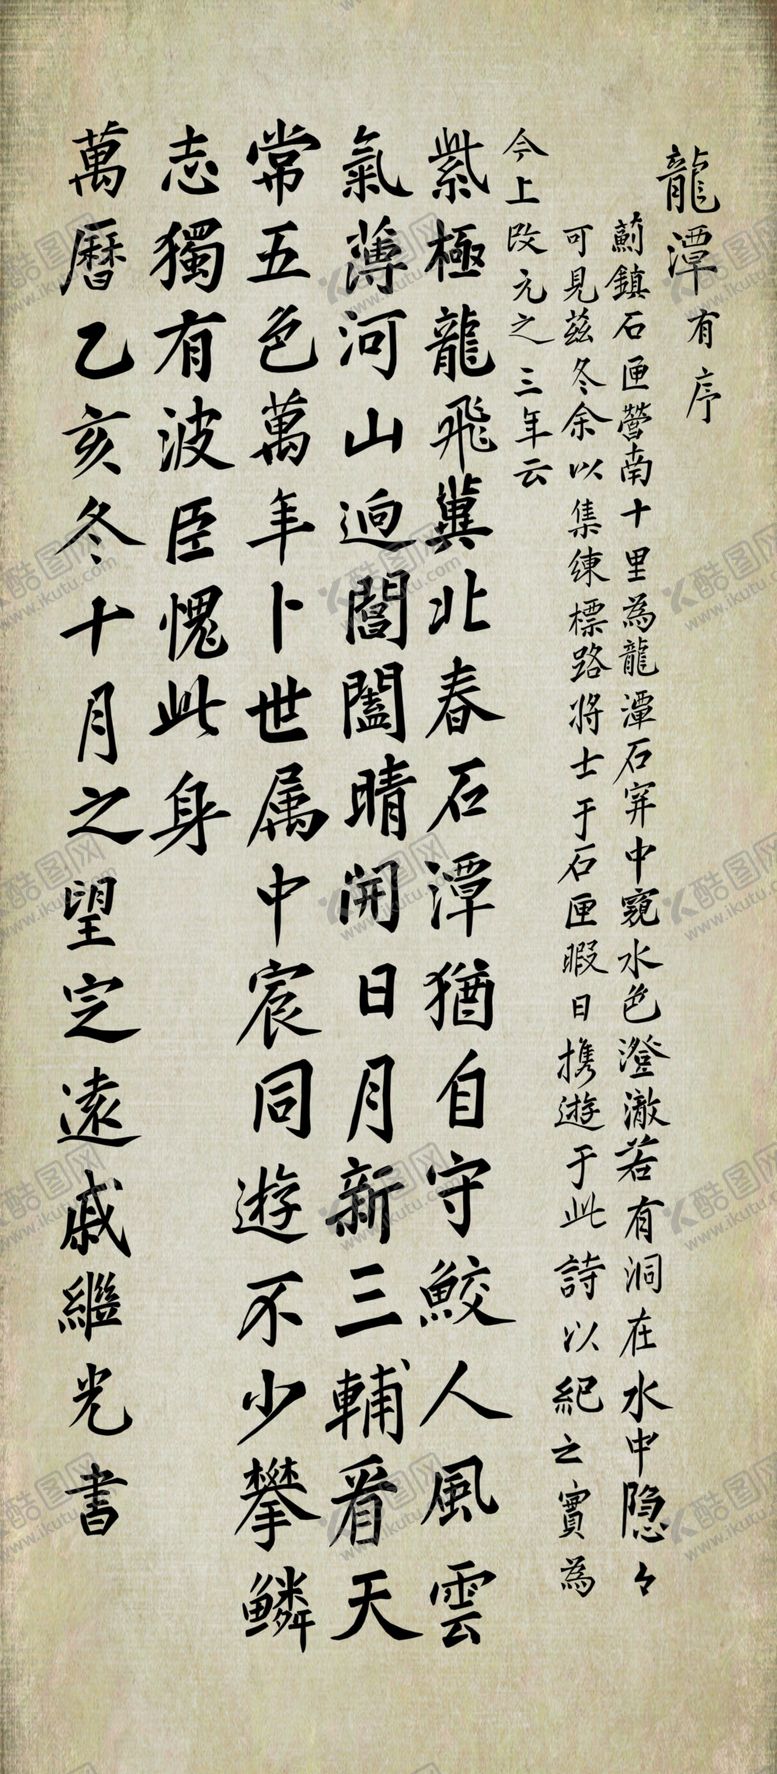 龍潭有序
薊鎮石匣營南十里為龍潭石穽中窺水色澄澈若有洞在水中隐々
可見茲冬余以集練標路將士于石匣暇日攜遊于此詩以紀之實為
今上改元之三年云
紫極龍飛冀北春石潭猶自守鮫人風雲
氣薄河山迥閶闔晴開日月新三輔看天
常五色萬年卜世属中宸同遊不少攀鱗
志獨有波臣愧此身
萬曆乙亥冬十月之望定遠戚繼光書